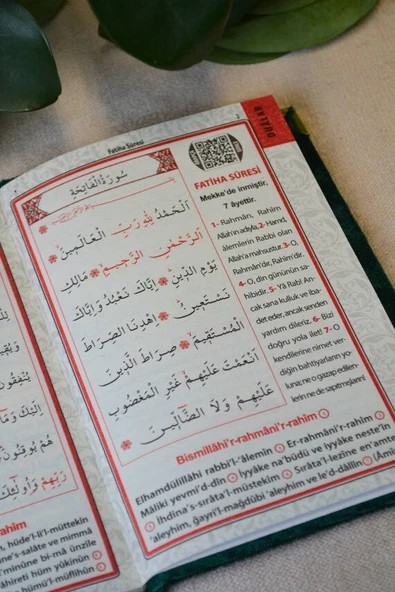 Fatiha Sûresi
DUALAR
سُورَةُ الْفَاتِحَةِ
اَلْحَمْدُ لِلّٰهِ رَبِّ الْعَالَمِينَ
اَلرَّحْمٰنِ الرَّحِيمِ مَالِكِ
يَوْمِ الدِّينِ اِيَّاكَ نَعْبُدُ وَاِيَّاكَ
نَسْتَعِينُ اِهْدِنَا الصِّرَاطَ
الْمُسْتَقِيمَ صِرَاطَ الَّذِينَ
اَنْعَمْتَ عَلَيْهِمْ غَيْرِ الْمَغْضُوبِ
عَلَيْهِمْ وَلَا الضَّالِّينَ
FATİHA SÛRESİ
Mekke'de inmiştir,
7 âyettir.
1- Rahmân, Rahîm
Allah'ın adıyla. 2- Hamd,
âlemlerin Rabbi olan
Allah'a mahsustur. 3- O,
Rahmân'dir, Rahîm'dir.
4- O, din gününün sa-
hibidir. 5- Yâ Rab! An-
cak sana kulluk ve iba-
det eder, ancak senden
yardım dileriz. 6- Bizi
doğru yola ilet! 7- O
kendilerine nimet ver-
diğin bahtiyarların yo-
luna; ne o gazap edilen-
lerin ne de sapıtmışların!
Bismillâhi'r-rahmâni'r-rahîm
Elhamdülillâhi rabbi'l-âlemîn Er-rahmâni'r-rahîm
Mâliki yevmi'd-dîn İyyâke na'büdü ve iyyâke neste'în
İhdina's-sırâta'l-müstekîm Sırâta'l-lezîne en'amte
'aleyhim, ğayri'l-mağdûbi 'aleyhim ve le'd-dâllîn
هُمْ يُوقِنُونَ
رَبِّهِمْ وَاُولٰئِكَ
rahîm
hüde'l-li'l-müttekîn
ne's-salâte ve mimmâ
minûne bi-mâ ünzile
âhireti hüm yûkinûn
hümü'l-müflihûn